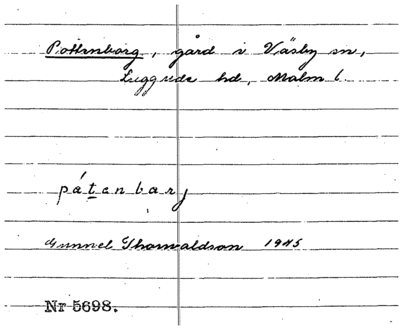 Pottenborg, gård i Väsby sn,
Luggude hd, Malm l.
pátanbarj
Gunnel Thorwaldson 1945
Nr 5698.